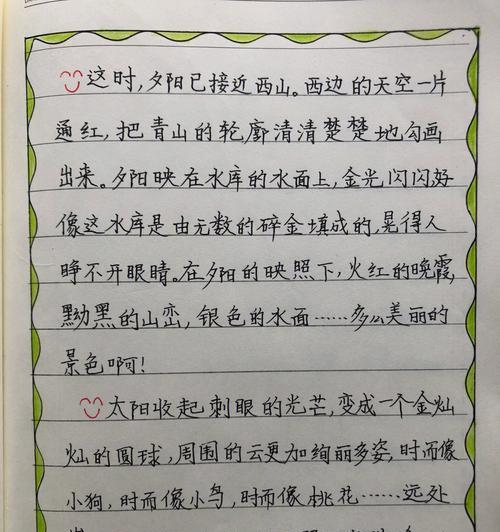 这时,夕阳已接近西山。西边的天空一片
通红,把青山的轮廓清清楚楚地勾画
出来。夕阳映在水库的水面上,金光闪闪,好
像这水库是由无数的碎金填成的,晃得人
睁不开眼睛。在夕阳的映照下,火红的晚霞,
黝黑的山峦,银色的水面……多么美丽的
景色啊!
太阳收起刺眼的光芒,变成一个金灿
灿的圆球,周围的云更加绚丽多姿,时而像
小狗,时而像小鸟,时而像桃花……远处